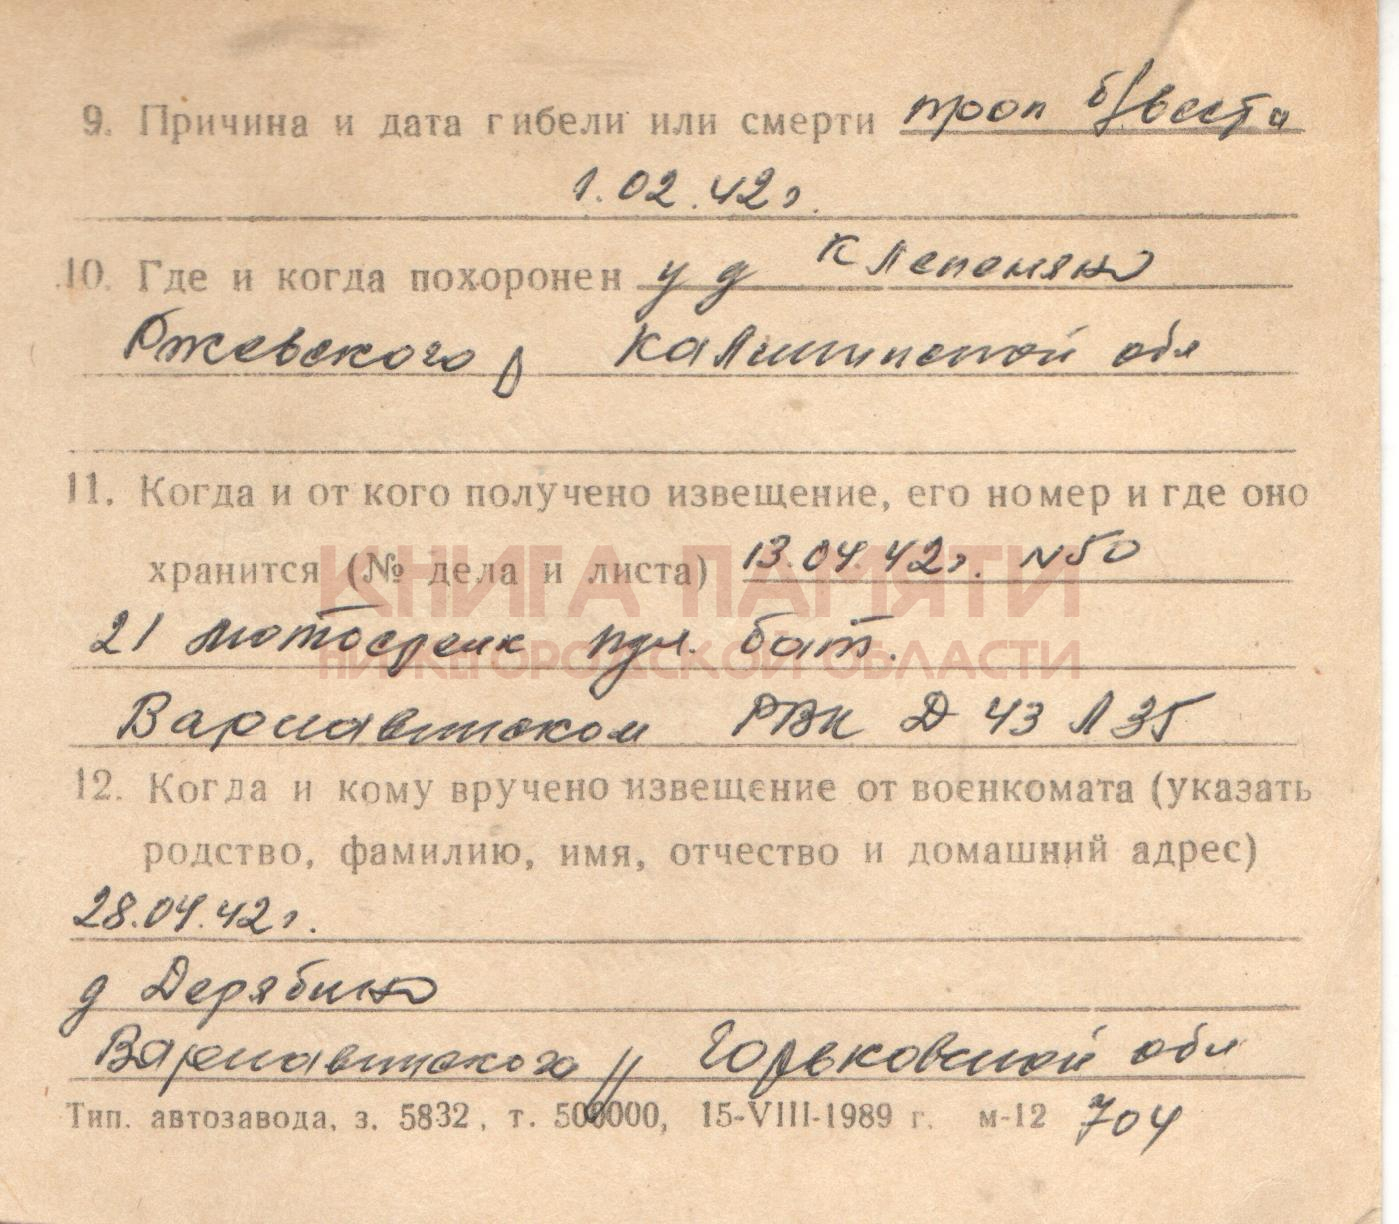 9. Причина и дата гибели или смерти проп б/вести
1.02.42г.
10. Где и когда похоронен у д Клепенино
Ржевского р Калининской обл
11. Когда и от кого получено извещение, его номер и где оно
хранится (№ дела и листа) 13.04.42г. N50
КНИГА ПАМЯТИ
21 мотострелк пул. бат.
НИЖЕГОРОДСКОЙ ОБЛАСТИ
Варнавинском РВК Д 43 Л 35
12. Когда и кому вручено извещение от военкомата (указать
родство, фамилию, имя, отчество и домашний адрес)
28.04.42г.
д Дерябино
Варнавинского р Горьковской обл
Тип. автозавода, з. 5832, т. 500000, 15-VIII-1989 г. м-12 704